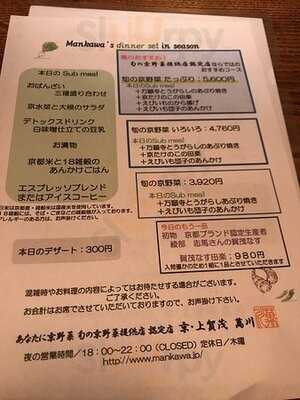 Mankawa's dinner set in season
本日の Sub meal
おばんざい
三種盛り合わせ
京水菜と大根のサラダ
デトックスドリンク
白味噌仕立ての豆乳
お漬物
京都米と18雑穀の
あんかけごはん
エスプレッソブレンド
またはアイスコーヒー
本日のデザート：300円
旬の京野菜提供店認定店ならではの
おすすめコース
旬の京野菜 たっぷり：5,600円
本日の Sub meal
＋万願寺とうがらしのあげひたし
＋京たけのこの田楽
＋えびいものから揚げ
＋えびいも団子のあんかけ
旬の京野菜 いろいろ：4,760円
本日の Sub meal
＋万願寺とうがらしのあげひたし
＋京たけのこの田楽
＋えびいも団子のあんかけ
旬の京野菜：3,920円
本日の Sub meal
＋万願寺とうがらしのあげひたし
＋えびいも団子のあんかけ
今日のもう一品
初物 京都ブランド認定生産者
綾部 志馬さんの賀茂なす
賀茂なす田楽：980円
混雑時やお料理の内容によってはお待たせする場合がございます。
ご了承ください。
お会計はお席でさせていただいておりますので、お声掛け下さい。
あなたに京野菜 旬の京野菜提供店 認定店 京・上賀茂 萬川
夜の営業時間／18：00～22：00 (CLOSED) 定休日／木曜
http://www.mankawa.jp/